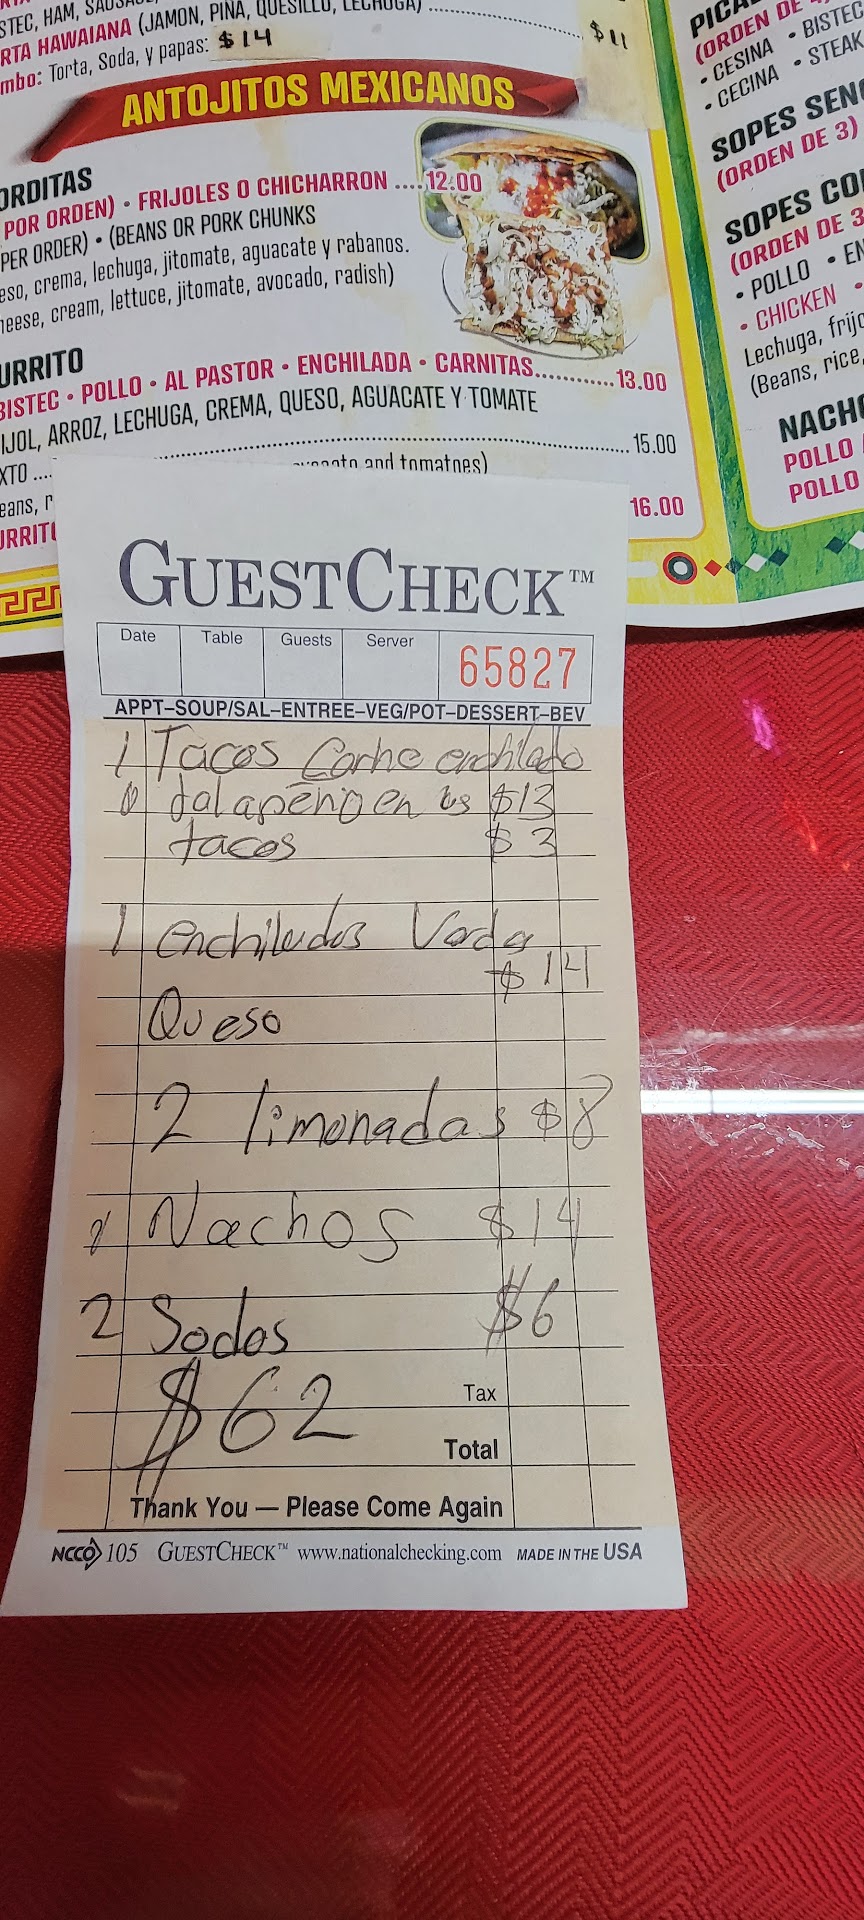 STEC, HAM, SAUSAGE,
RTA HAWAIANA (JAMON, PIÑA, QUESILLO, LECHUGA) ..... $11
mbo: Torta, Soda, y papas: $14
ANTOJITOS MEXICANOS
ORDITAS
POR ORDEN) • FRIJOLES O CHICHARRON ....12.00
PER ORDER) • (BEANS OR PORK CHUNKS
eso, crema, lechuga, jitomate, aguacate y rabanos.
heese, cream, lettuce, jitomate, avocado, radish)
URRITO
BISTEC • POLLO • AL PASTOR • ENCHILADA • CARNITAS............13.00
IJOL, ARROZ, LECHUGA, CREMA, QUESO, AGUACATE Y TOMATE
XTO ..... 15.00
eans, r and tomatoes)
URRITO 16.00
PICA
(ORDEN DE
• CESINA • BISTEC
• CECINA • STEAK
SOPES SEN
(ORDEN DE 3)
SOPES CO
(ORDEN DE 3
• POLLO • EN
• CHICKEN •
Lechuga, frijo
(Beans, rice,
NACHO
POLLO
POLLO
GUESTCHECK™
Date Table Guests Server 65827
APPT–SOUP/SAL–ENTREE–VEG/POT–DESSERT–BEV
1 Tacos Carne enchilada
Jalapeño en los $13
tacos $3
1 enchiladas Verde
$14
Queso
2 limonadas $8
Nachos $14
2 Sodas $6
$62 Tax
Total
Thank You — Please Come Again
NCCO 105 GUESTCHECK™ www.nationalchecking.com MADE IN THE USA